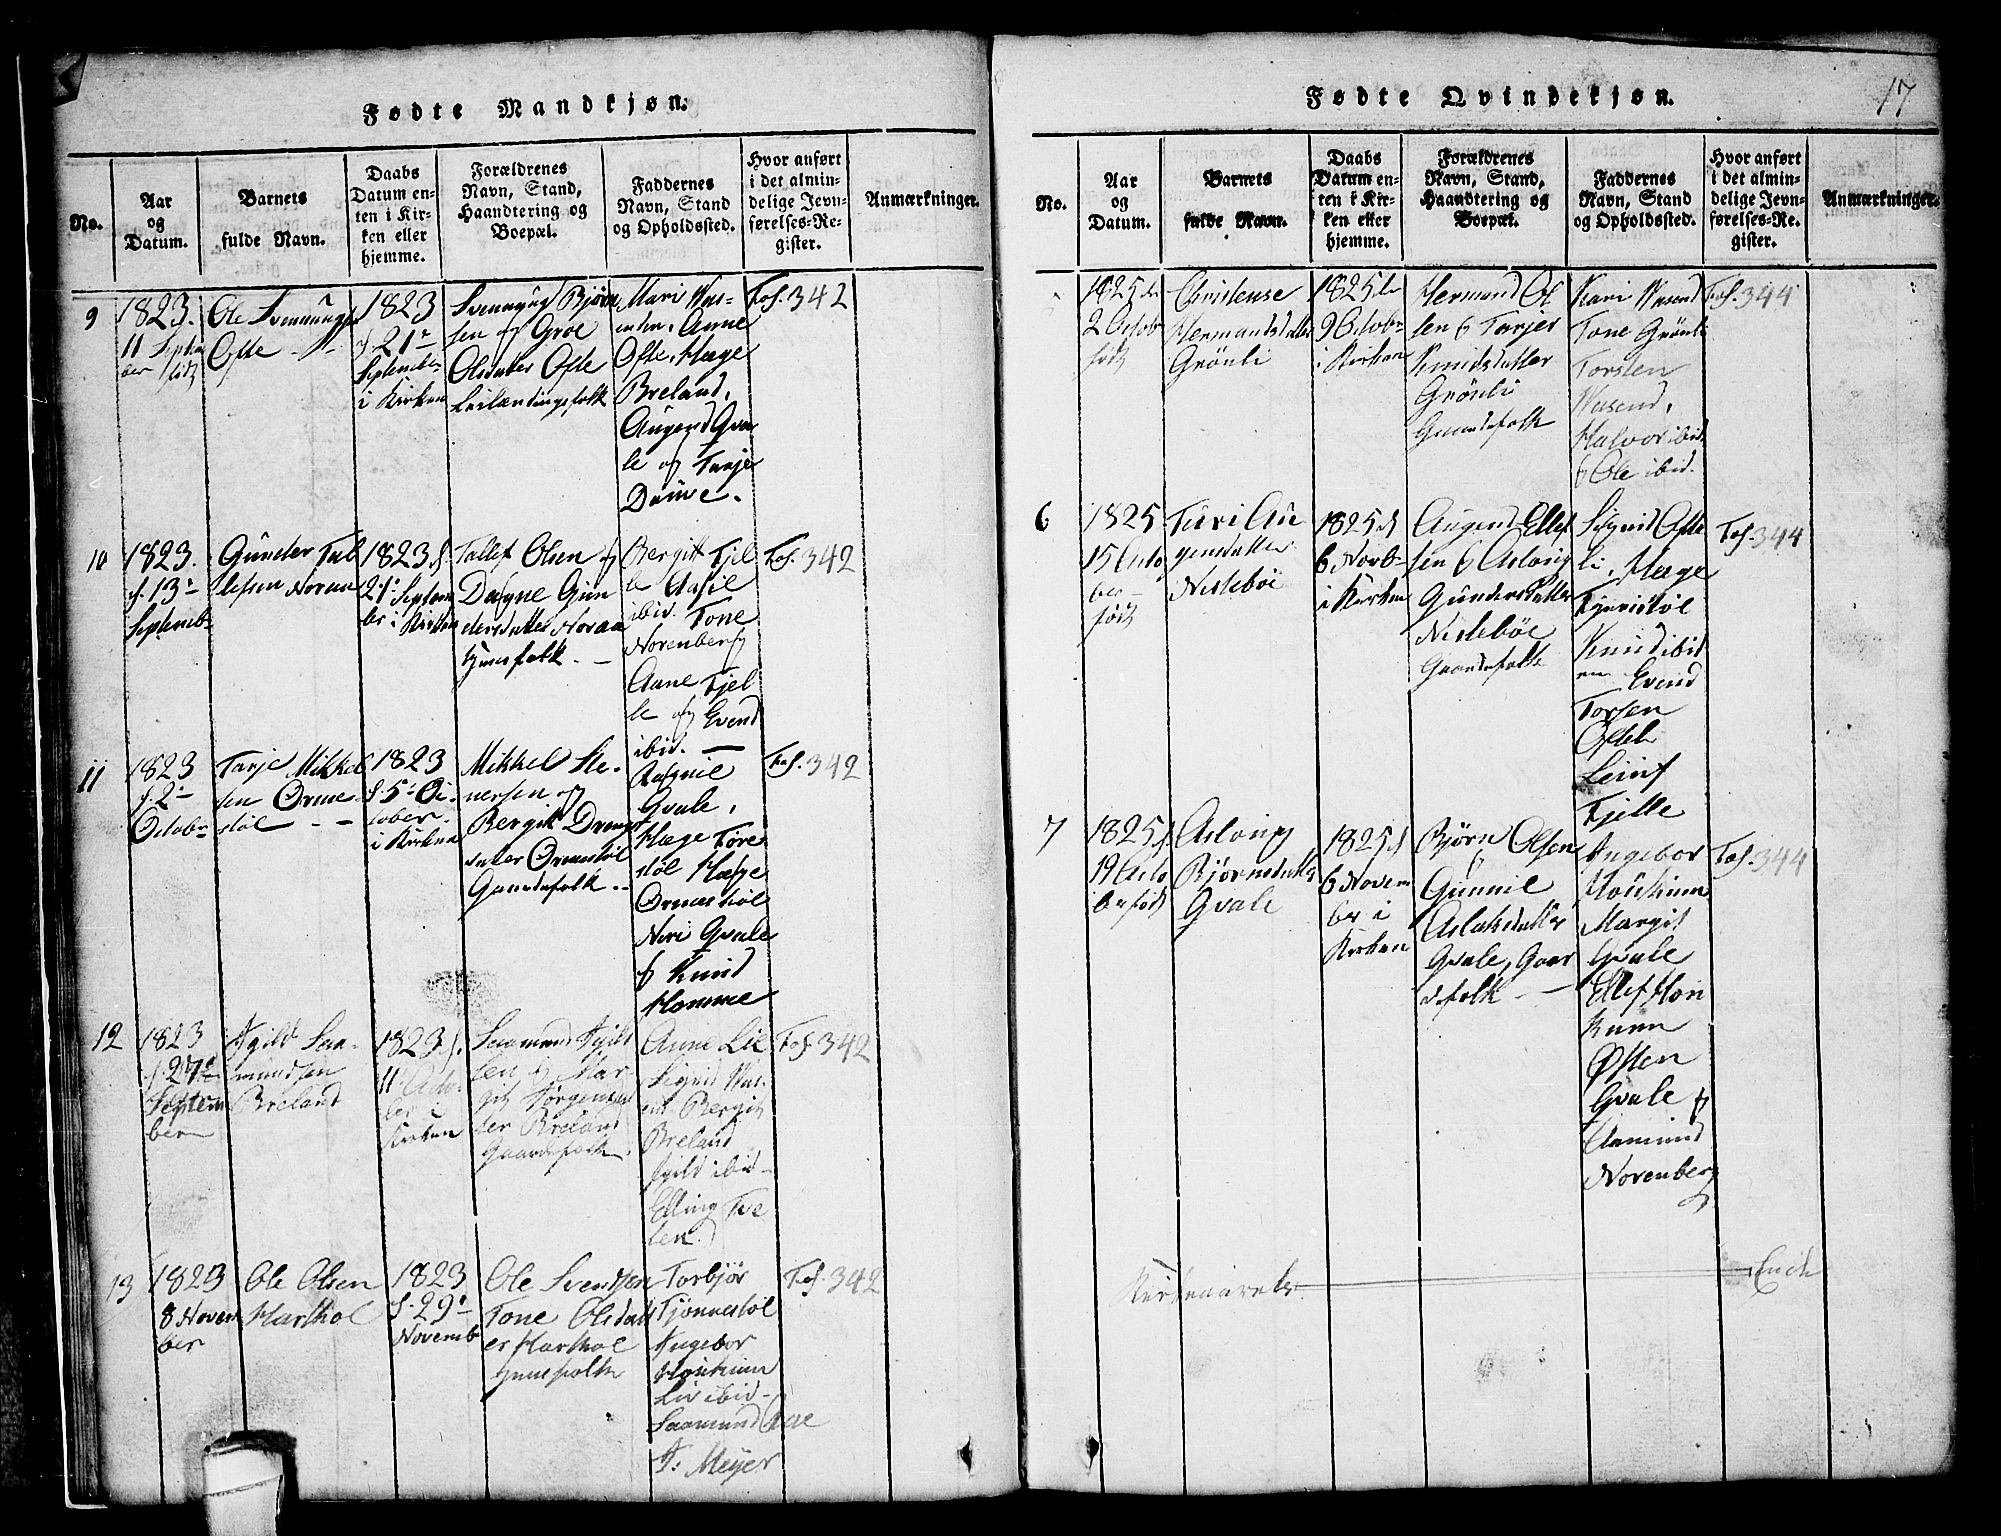 Fødte Mandkjøn.
No.
Aar
og
Datum.
Barnets
fulde Navn.
Daabs
Datum en-
ten i Kir-
ken eller
hjemme.
Forældrenes
Navn, Stand,
Haandtering og
Boepæl.
Faddernes
Navn, Stand
og Opholdssted.
Hvor anført
i det almin-
delige Jevn-
førelses-Re-
gister.
Anmærkninger.
9
1823.
11 Septem
ber født
Ole Svennungs
Ofte
1823
d. 21de
September
i Kirken
Svennung Bjørn
sen og Groe
Olsdatter Ofte
Leilændingsfolk
Mari Vas-
enden, Anne
Ofte, Hæge
Breland,
Augend Gva
le og Tarje
Dauve.
Fol. 342
10
1823.
d. 13de
Septemb
Gunder Tal
lefsen Noraa
1823 d.
21de Septem
ber i Kirken
Tallef Olsen og
Dagne Gun
dersdatter Noraa
Huusfolk.
Bergitt Fjel
le Aasie
ibid. Tone
Norenberg
Anne Fjel
le og Evend
ibid.
Fol. 342
11
1823
d. 2de
Octobr
Tarje Mikkel
sen Ormes
tøl
1823
d. 5te Oc
tober
i Kirken
Mikkel Ste-
nersen og
Bergit Drengs
datter Ormestøl
Gaardefolk.
Aasnie
Gvale,
Hæge Føre
støl Hæge
Ormestøl
Neri Gvale
og Knud
Homme
Fol. 342
12
1823
d. 27de
Septem
ber
Kjild Saa-
mundsen
Breland
1823 d.
11 Octo
ber i
Kirken
Saamund Kjild
sen og Mar
git Jørgensdat
ter Breland
Gaardefolk.
Anne Lie
Signid Vas-
end Bergit
Breland
Kjild ibid
Elling Tve
ten.
Fol. 342
13
1823
8 Novem
ber
Ole Olsen
Harthol
1823
d. 29de
Novemb
Ole Svendsen
Tone Olsdatt
er Harthol
Huusfolk
Torbjør
Tjønnestøl
Ingebor
Houkum
Liv ibid
Saamund Aase
F. Meyer
Fol. 342
Fødte Qvindekjøn.
17
No.
Aar
og
Datum.
Barnets
fulde Navn.
Daabs
Datum en-
ten i Kir-
ken eller
hjemme.
Forældrenes
Navn, Stand,
Haandtering og
Boepæl.
Faddernes
Navn, Stand
og Opholdssted.
Hvor anført
i det almin-
delige Jevn-
førelses-Re-
gister.
Anmærkninger.
1825 den
2 Octob
født
Christense
Hermandsdatter
Grönli
1825 den
9 Octobr
i Kirken
Hermand Ol
sen & Tarjer
Knudsdatter
Grönli
Gaardefolk
Kari Vasend
Tone Grönli
Torsten
Vasend,
Halvor ibid.
& Ole ibid.
Fol. 344
6
1825
15 Octo
ber
født
Turi Au
gensdatter
Neslebøe
1825 d
6 Novb
i Kirken
Augend Ellef
sen & Aslaug
Gundersdatter
Neslebøe
Gaardefolk
Signid Ofte
li, Hæge
Fjerestøl
Knud ibid
Evend
Torsen
Oftel
Leiuf
Fjelle
Fol. 344
7
1825 d.
19 Octo
ber født
Aslaug
Bjørnsdatter
Gvale
1825 d
6 Novem
ber i
Kirken
Bjørn Olsen
&
Gunnil
Aslaksdatter
Gvale, Gaar
defolk
Ingebor
Houkum
Margit
Gvale
Ellef Hou
kum
Østen
Gvale og
Aamund
Norenberg
Fol. 344
Kirkeaarets
Ende